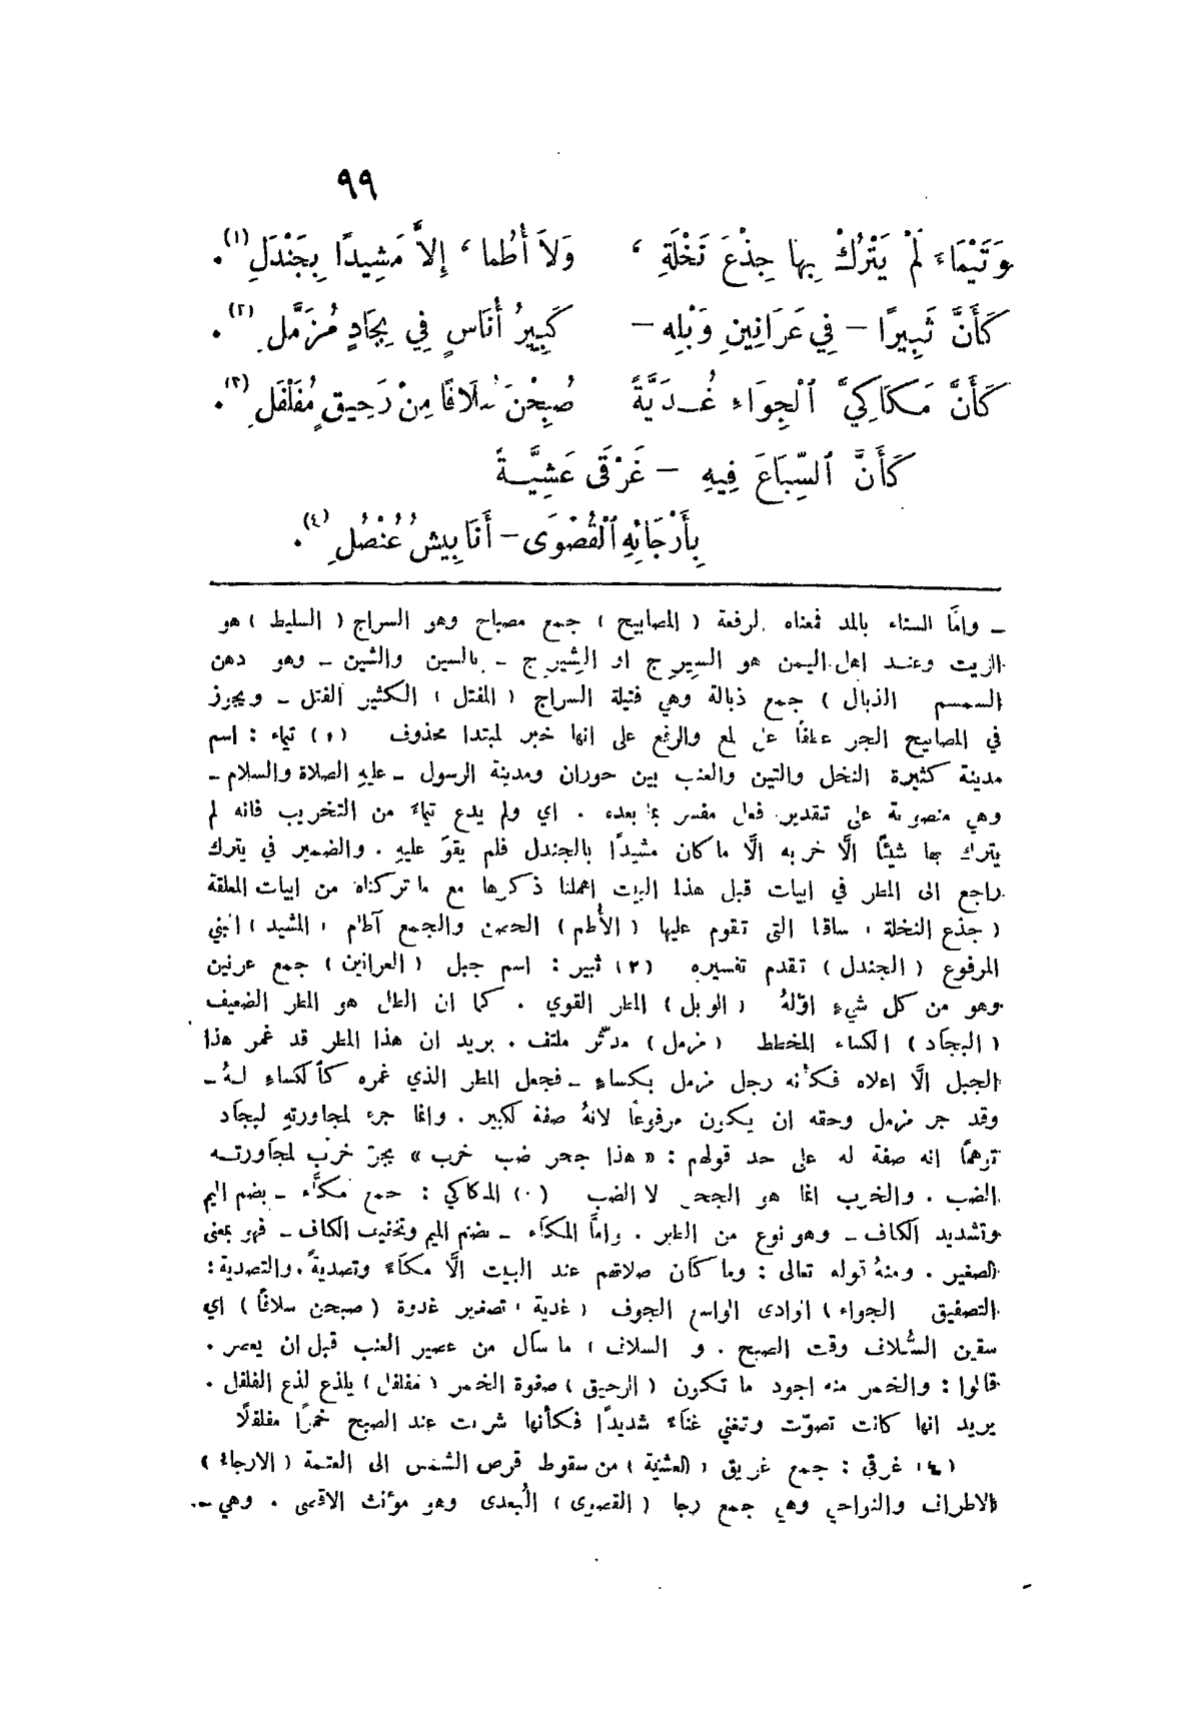 ٩٩
وَتَيْمَاءَ لَمْ يَتْرُكْ بِهَا جِذْعَ نَخْلَةٍ ، وَلاَ أُطُماً ، إِلاَّ مَشِيدًا بِجَنْدَلِ (١) .
كَأَنَّ ثَبِيرًا – فِي عَرَانِينِ وَبْلِهِ – كَبِيرُ أُنَاسٍ فِي بِجَادٍ مُزَمَّلِ (٢) .
كَأَنَّ مَكَاكِيَّ ٱلْجِوَاءِ غُدَيَّةً صُبِحْنَ سُلاَفًا مِنْ رَحِيقٍ مُفَلْفَلِ (٣) .
كَأَنَّ ٱلسِّبَاعَ فِيهِ – غَرْقَى عَشِيَّةً
بِأَرْجَائِهِ ٱلْقُصْوَى – أَنَابِيشُ عُنْصُلِ (٤) .
– وامَّا السناء بالمد فمعناه الرفعة ( المصابيح ) جمع مصباح وهو السراج ( السليط ) هو
الزيت وعند اهل اليمن هو السيرج او الشيرج – بالسين والشين – وهو دهن
السمسم الذبال ) جمع ذبالة وهي فتيلة السراج ( المفتل ) الكثير الفتل – ويجوز
في المصابيح الجر عطفًا على لمع والرفع على انها خبر لمبتدا محذوف (١) تيماء : اسم
مدينة كثيرة النخل والتين والعنب بين حوران ومدينة الرسول – عليهِ الصلاة والسلام –
وهي منصوبة على تقدير فعل مفسر بما بعده . اي ولم يدع تيماءَ من التخريب فانه لم
يترك بها شيئًا الَّا خربه الَّا ما كان مشيدًا بالجندل فلم يقوَ عليهِ . والضمير في يترك
راجع الى المطر في ابيات قبل هذا البيت اهملنا ذكرها مع ما تركناه من ابيات المعلقة
( جذع النخلة ) ساقها التي تقوم عليها ( الأُطم ) الحصن والجمع آطام ( المشيد ) المبني
المرفوع ( الجندل ) تقدم تفسيره (٢) ثبير : اسم جبل ( العرانين ) جمع عرنين
وهو من كل شيءٍ اوَّلهُ ( الوبل ) المطر القوي . كما ان الطل هو المطر الضعيف
( البجاد ) الكساء المخطط ( مزمل ) مدثَّر ملتف . يريد ان هذا المطر قد غمر هذا
الجبل الَّا اعلاه فكأنه رجل مزمل بكساءٍ – فجعل المطر الذي غمره كالكساءِ لهُ –
وقد جر مزمل وحقه ان يكون مرفوعًا لانهُ صفة لكبير . وانما جره لمجاورتهِ لبجاد
توهمًا انه صفة له على حد قولهم : « هذا جحر ضب خرب » بجرّ خرب لمجاورته
الضب . والخرب انما هو الجحر لا الضب (٣) المكاكي : جمع مكَّاء – بضم الميم
وتشديد الكاف – وهو نوع من الطير . وامَّا المكاء – بضم الميم وتخفيف الكاف – فهو بمعنى
الصفير . ومنهُ قوله تعالى : وما كان صلاتهم عند البيت الَّا مكاءً وتصديةً . والتصدية :
التصفيق الجواء ) الوادي الواسع الجوف ( غدية ) تصغير غدوة ( صبحن سلافًا ) اي
سقين السُّلاف وقت الصبح . و ( السلاف ) ما سال من عصير العنب قبل ان يعصر .
قالوا : والخمر منه اجود ما تكون ( الرحيق ) صفوة الخمر ( مفلفل ) يلذع لذع الفلفل .
يريد انها كانت تصوّت وتغني غناءً شديدًا فكأنها شربت عند الصبح خمرًا مفلفلًا
(٤) غرقى : جمع غريق ( العشية ) من سقوط قرص الشمس الى العتمة ( الارجاءُ )
الاطراف والنواحي وهي جمع رجا ( القصوى ) البُعدى وهو مؤنث الاقصى . وهي –